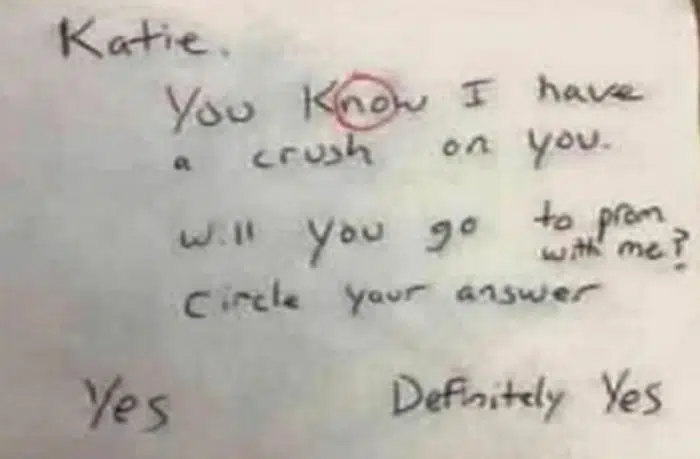 Katie.
You Know I have
a crush on you.
will you go to prom
with me?
Circle your answer
Yes Definitely Yes